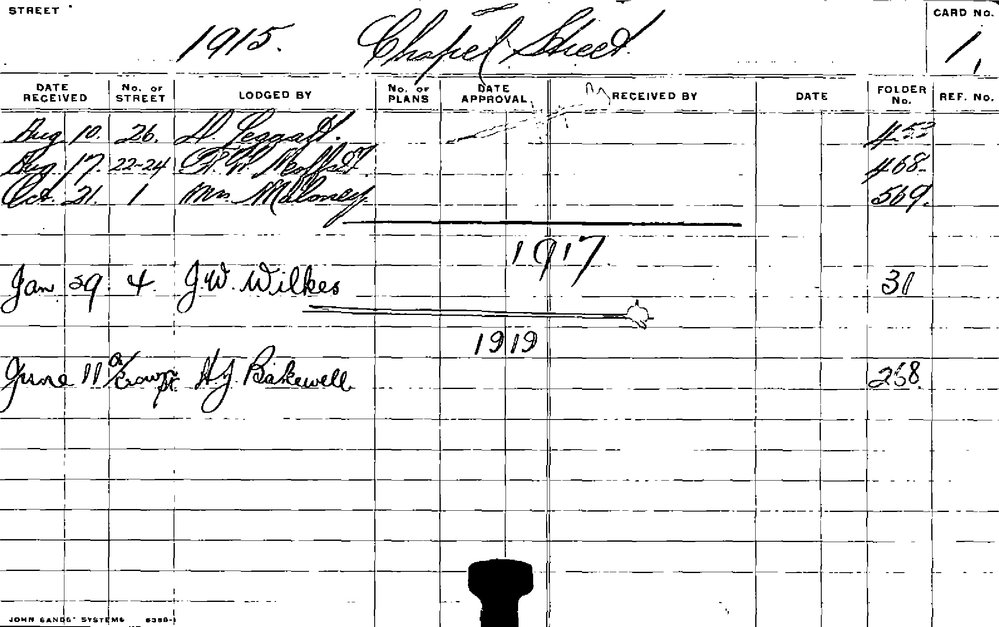 STREET
1915. Chapel Street.
CARD No.
1,
DATE RECEIVED No. OF STREET LODGED BY No. OF PLANS DATE APPROVAL RECEIVED BY DATE FOLDER No. REF. No.
Aug 10. 26. D. Leggatt. 453
Aug 17. 22-24 W. Moffatt. 468.
Oct. 21. 1 Mrs. Maloney 569.
1917
Jan 29 4. J.W. Wilkes 31
1919
June 11 Crown St. H.J. Bakewell 268.
JOHN SANDS' SYSTEMS